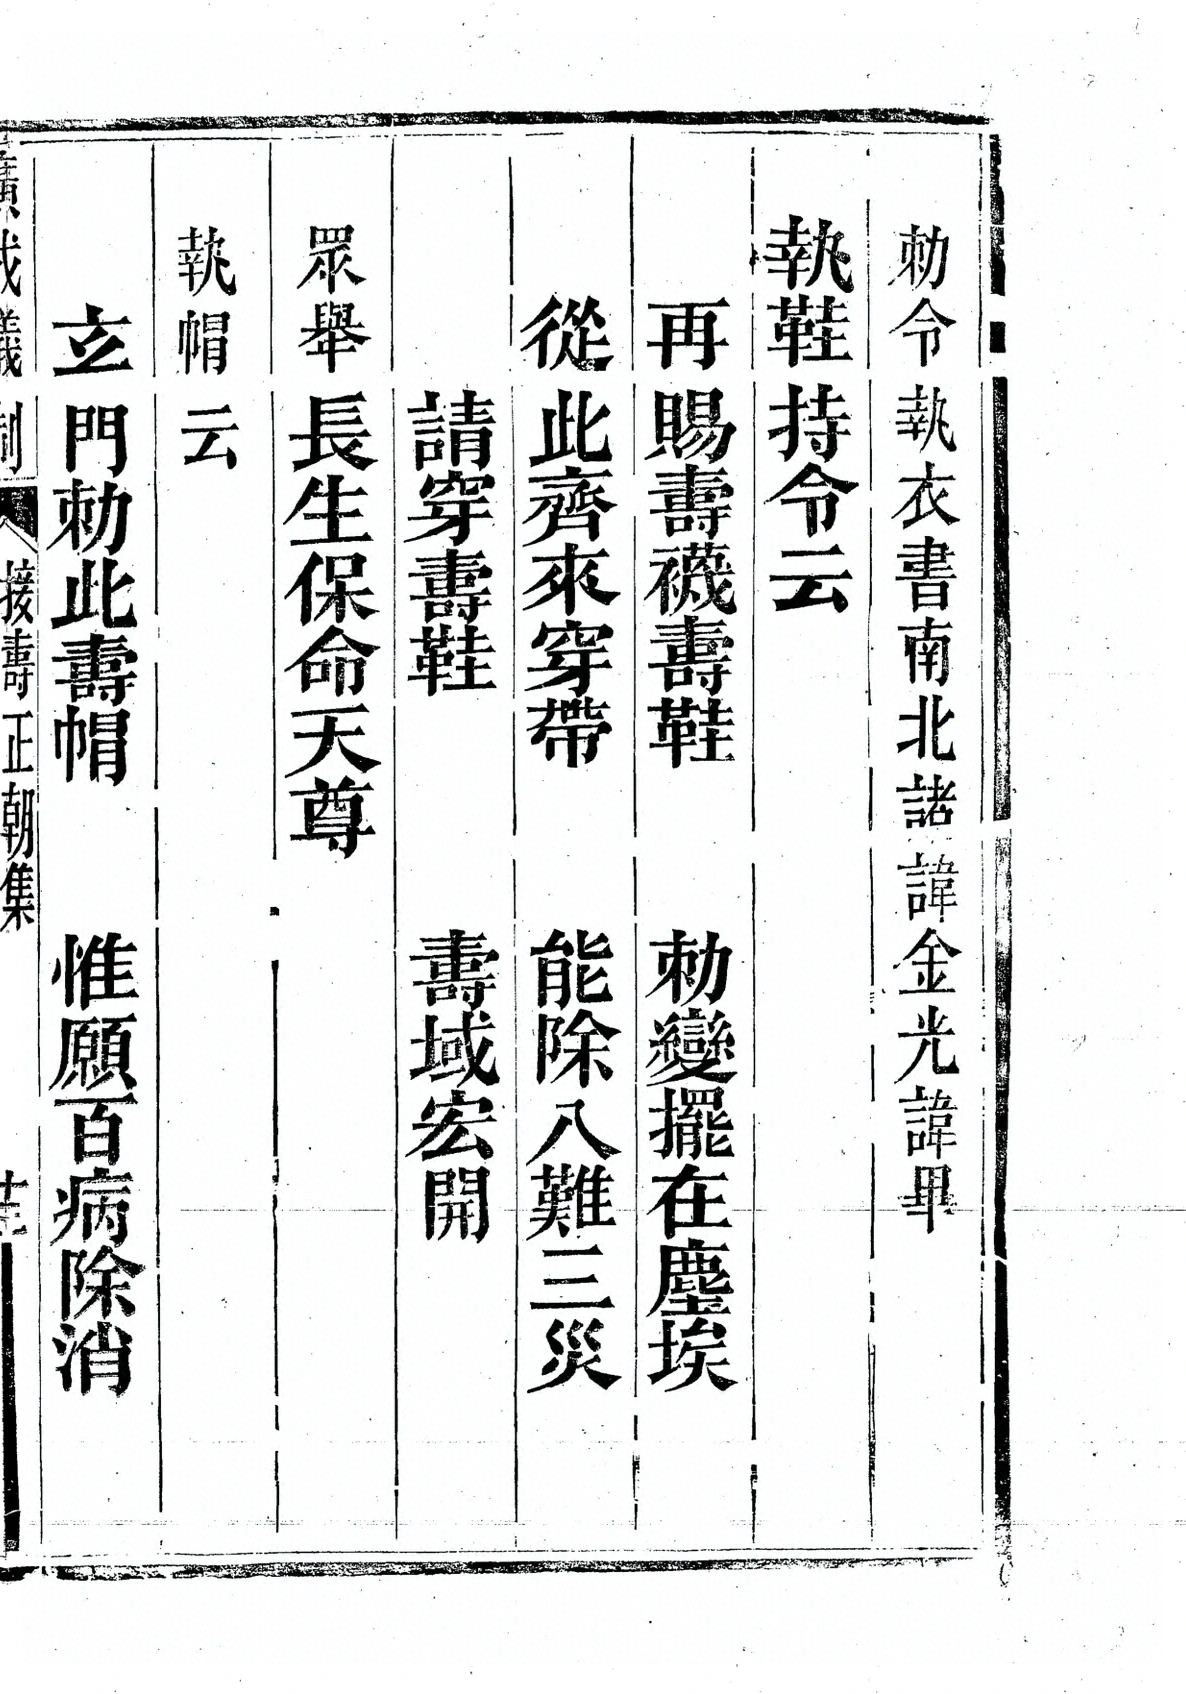 勅令執衣書南北諸諱金光諱畢
執鞋持令云
再賜壽襪壽鞋　勅變擺在塵埃
從此齊來穿帶　能除八難三災
請穿壽鞋　壽域宏開
眾舉長生保命天尊
執帽云
玄門勅此壽帽　惟願百病除消
廣成儀制　接壽正朝集